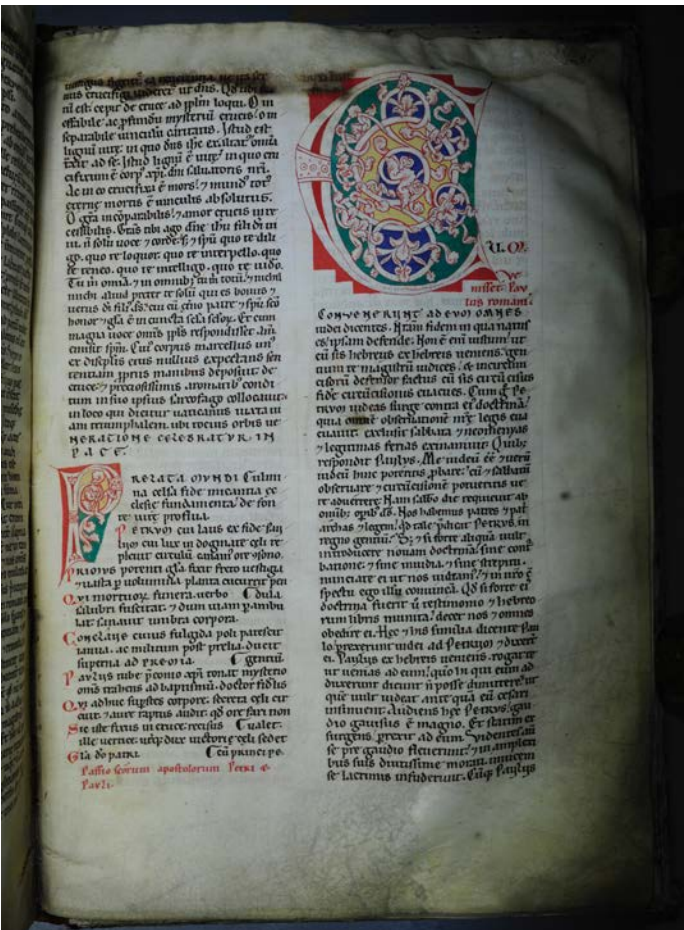 mus crucifixi videret ut dn̄s. Qđ ubi
nū est cepit de cruce ad pplm loqui. O in
effabile ac profundū mysteriū crucis. o in
separabile vinculū caritatis. Istud est
lignū vite in quo dn̄s ih̄c exaltat' omnia
traxit ad se. Istud lignū ē vite in quo cru
cifixum ē corp' xp̄i. dn̄i salvatoris nr̄i.
Ac in eo crucifixa ē mors. ⁊ mund' tot'
eterne mortis ē vinculis absolutus.
O gr̄a incōparabilis. ⁊ amor crucis in re
cessibilis. Gr̄as tibi ago dn̄e ih̄u fili di vi
vi. n̄ solū voce ⁊ corde. s; ⁊ sp̄u quo te dili
go. quo te loquor. quo te interpello. quo
te teneo. quo te intelligo. quo te video.
Tu m̄ omia. ⁊ in omnib; tu m̄ totū. ⁊ nichil
michi aliud preter te solū qui es bonus ⁊
verus di fili. d̄s. cui cū et̄no patre ⁊ sp̄u sc̄o
honor ⁊ gl̄a ē in cuncta sc̄la sc̄lor. Et cum
magna voce omis ppl̄s respondisset am̄
emisit sp̄m. Cui' corpus marcellus un'
ex discip̄lis eius nullius expectans sen
tentiam. pp̄riis manibus deposuit de
cruce. ⁊ preciosissimis aromatib; condi
tum in suo ipsius sarcofago collocavit.
in loco qui dicitur vaticanus iuxta vi
am triumphalem. ubi totius orbis ve
NERATIONE CELEBRATVR. IN
PACE.
PRELATA MVNDI Culmi
na celsa fide micantia ec
clesie fundamenta. de fon
te vite proflua.
PETRVM cui laus ex fide. Pau
lum cui lux in dogmate celi re
PRIMVS potenti q̄la fixit freto vestigia
QVI mortuor. funera. verbo
salubri suscitat. ⁊ dum viam p ambu
lat sanavit umbra corpora.
CONCLAVE cuius fulgida poli patescit
ianua. ac militum post prelia. ducit
superna ad PREMIA. gentiū.
PAVLVS tube p̄conio xp̄i tonat mysterio
omīs trahens ad baptismū. doctor fidus
QVI adhuc sup̄stes corpore. secreta celi cir
cuit. ⁊ aure raptus audit. qđ ore fari non
Sic iste fixus in cruce. recisus valet.
ille vertice. utq; dire victorie celi sedet
Gl̄a do patri. cū principe.
Passio scōrum apostolorum Petri &
Pauli.
CVM
ve
nisset Pav
lus romam
CONVENERVNT AD EVM OMNES
iudei dicentes. Nr̄am fidem in qua natus
es. ipsam defende. Non ē eni iustum ut
cū sis hebreus ex hebreis veniens. gen
tium te magistrū iudices. & incircum
cisorū defensor factus cū sis circūcisus
fidē circūcisionis evacues. Cum g° Pe
trum videas surge contra ei' doctrinā
quia omnē observationē nr̄e legis eva
cuavit. exclusit sabbata ⁊ neomenias
⁊ legitimas ferias exinanivit. Quib;
respondit Paulus. Me iudeū eē ⁊ verū
iudeū hinc poteritis pbare. cū ⁊ sabbatū
observare ⁊ circūcisionē potueritis ve
re advertere. Nam sabbō die requievit ab
omib; opib; d̄s. Nos habemus patres ⁊ patri
archas ⁊ legem. qđ tale p̄dicat PETRVS. in
regno gentiū. S; ⁊ si forte aliquā vult
introducere novam doctrinā. sine contur
batione. ⁊ sine invidia. ⁊ sine strepitu.
nunciate ei ut nos videam'. ⁊ in vr̄o cō
spectu ego illū convincā. Qđ si forte ei'
doctrina fuerit ū testimonio ⁊ hebreo
rum libris munita. decet nos ⁊ omnes
obedire ei. Hec ⁊ his similia dicente Pau
lo. prexerunt iudei ad PETRVM ⁊ dixerūt
ei. Paulus ex hebreis veniens. rogat te
ut venias ad eum. quō hi qui eum ad
duxerunt dicunt n̄ posse dimittere. ut
quē vult videat antē quā eū cesari
insinuent. Audiens hec PETRVS. gau
dio gavisus ē magno. Et statim ex
surgens prexit ad eum. Videntes autē
se pre gaudio fleverunt. ⁊ in amplexi
bus suis diutissime morati. invicem
se lacrimis infuderunt. Cūq; Paulus